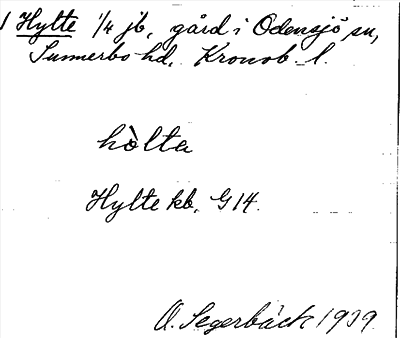 1 Hylte 1/4 jb, gård i Odensjö sn,
Sunnerbo hd, Kronob. l.
hòlta
Hylte kb, G 14.
O. Segerbäck 1939